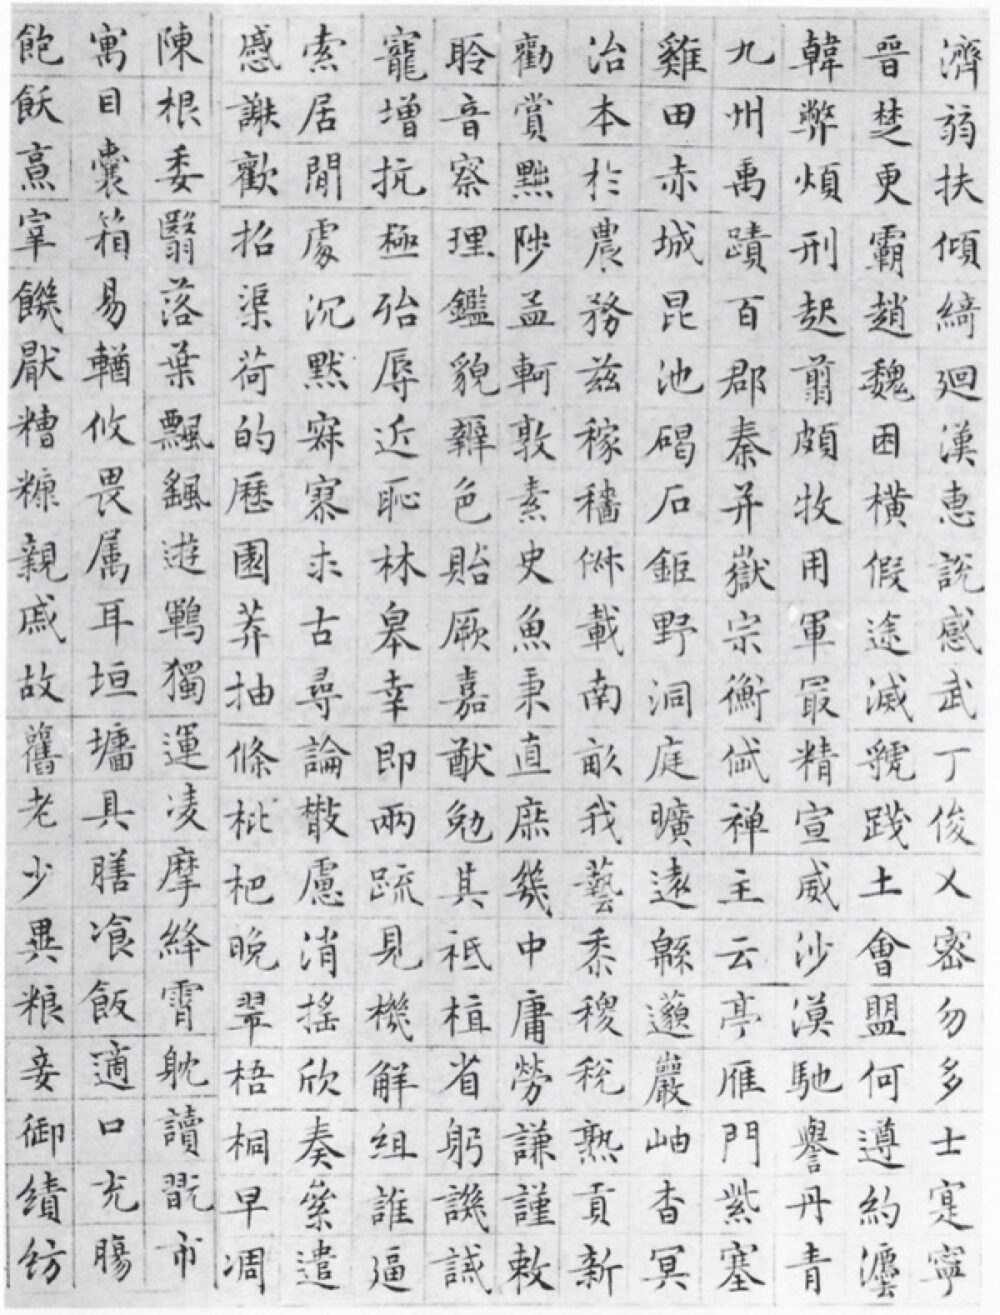 濟弱扶傾綺迴漢惠說感武丁俊乂密勿多士寔寧
晉楚更霸趙魏困橫假途滅虢踐土會盟何遵約灋
韓弊煩刑起翦頗牧用軍最精宣威沙漠馳譽丹青
九州禹蹟百郡秦并嶽宗衡岱禪主云亭雁門紫塞
雞田赤城昆池碣石鉅野洞庭曠遠緜邈巖岫杳冥
治本於農務茲稼穡俶載南畝我藝黍稷稅熟貢新
勸賞黜陟孟軻敦素史魚秉直庶幾中庸勞謙謹敕
聆音察理鑑貌辨色貽厥嘉猷勉其祗植省躬譏誡
寵增抗極殆辱近恥林皋幸即兩疏見機解組誰逼
索居閒處沉默寂寥求古尋論散慮消搖欣奏累遣
慼謝歡招渠荷的歷園莽抽條枇杷晚翠梧桐早凋
陳根委翳落葉飄颻遊鵾獨運凌摩絳霄躭讀翫市
寓目囊箱易輶攸畏属耳垣墻具膳飡飯適口充腸
飽飫烹宰饑厭糟糠親戚故舊老少異粮妾御績紡